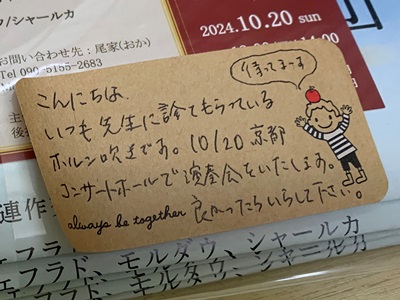 ウ/シャールカ
お問い合わせ先：尾家(おか)
Tel 090-5155-2683
2024.10.20 sun
待ってまーす
こんにちは、
いつも先生に診てもらっている
ホルン吹きです。10/20 京都
コンサートホールで演奏会をいたします。
always be together 良かったらいらして下さい。
連作
ェフラド、モルダウ、シャールカ